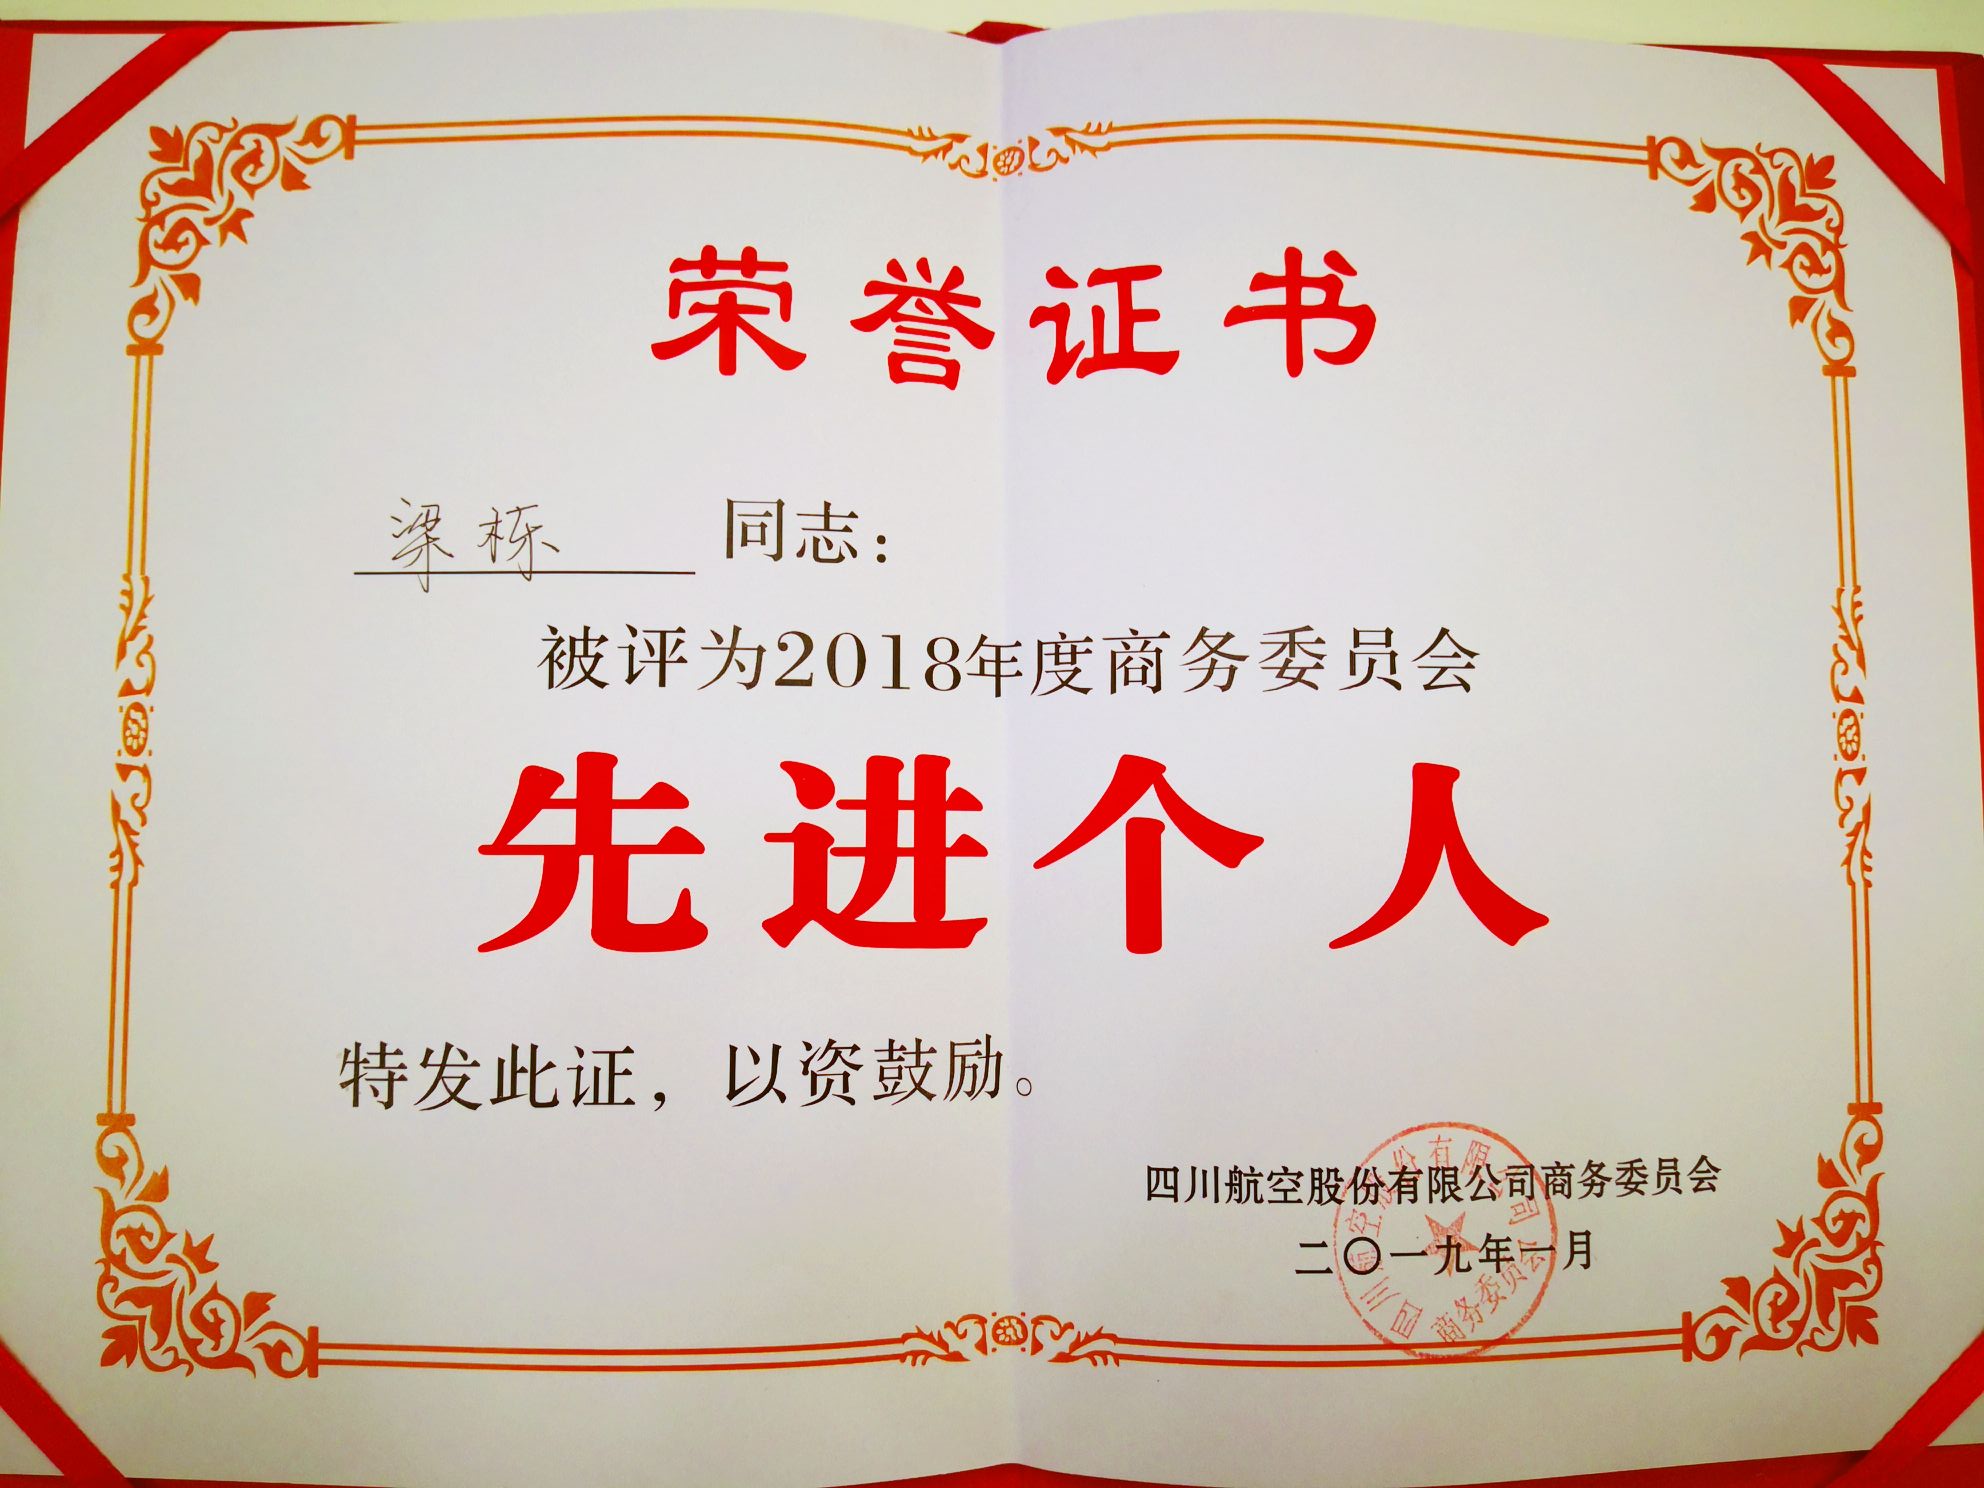 荣誉证书
梁栋 同志：
被评为2018年度商务委员会
先进个人
特发此证，以资鼓励。
四川航空股份有限公司商务委员会
二〇一九年一月
四川航空股份有限公司
商务委员会